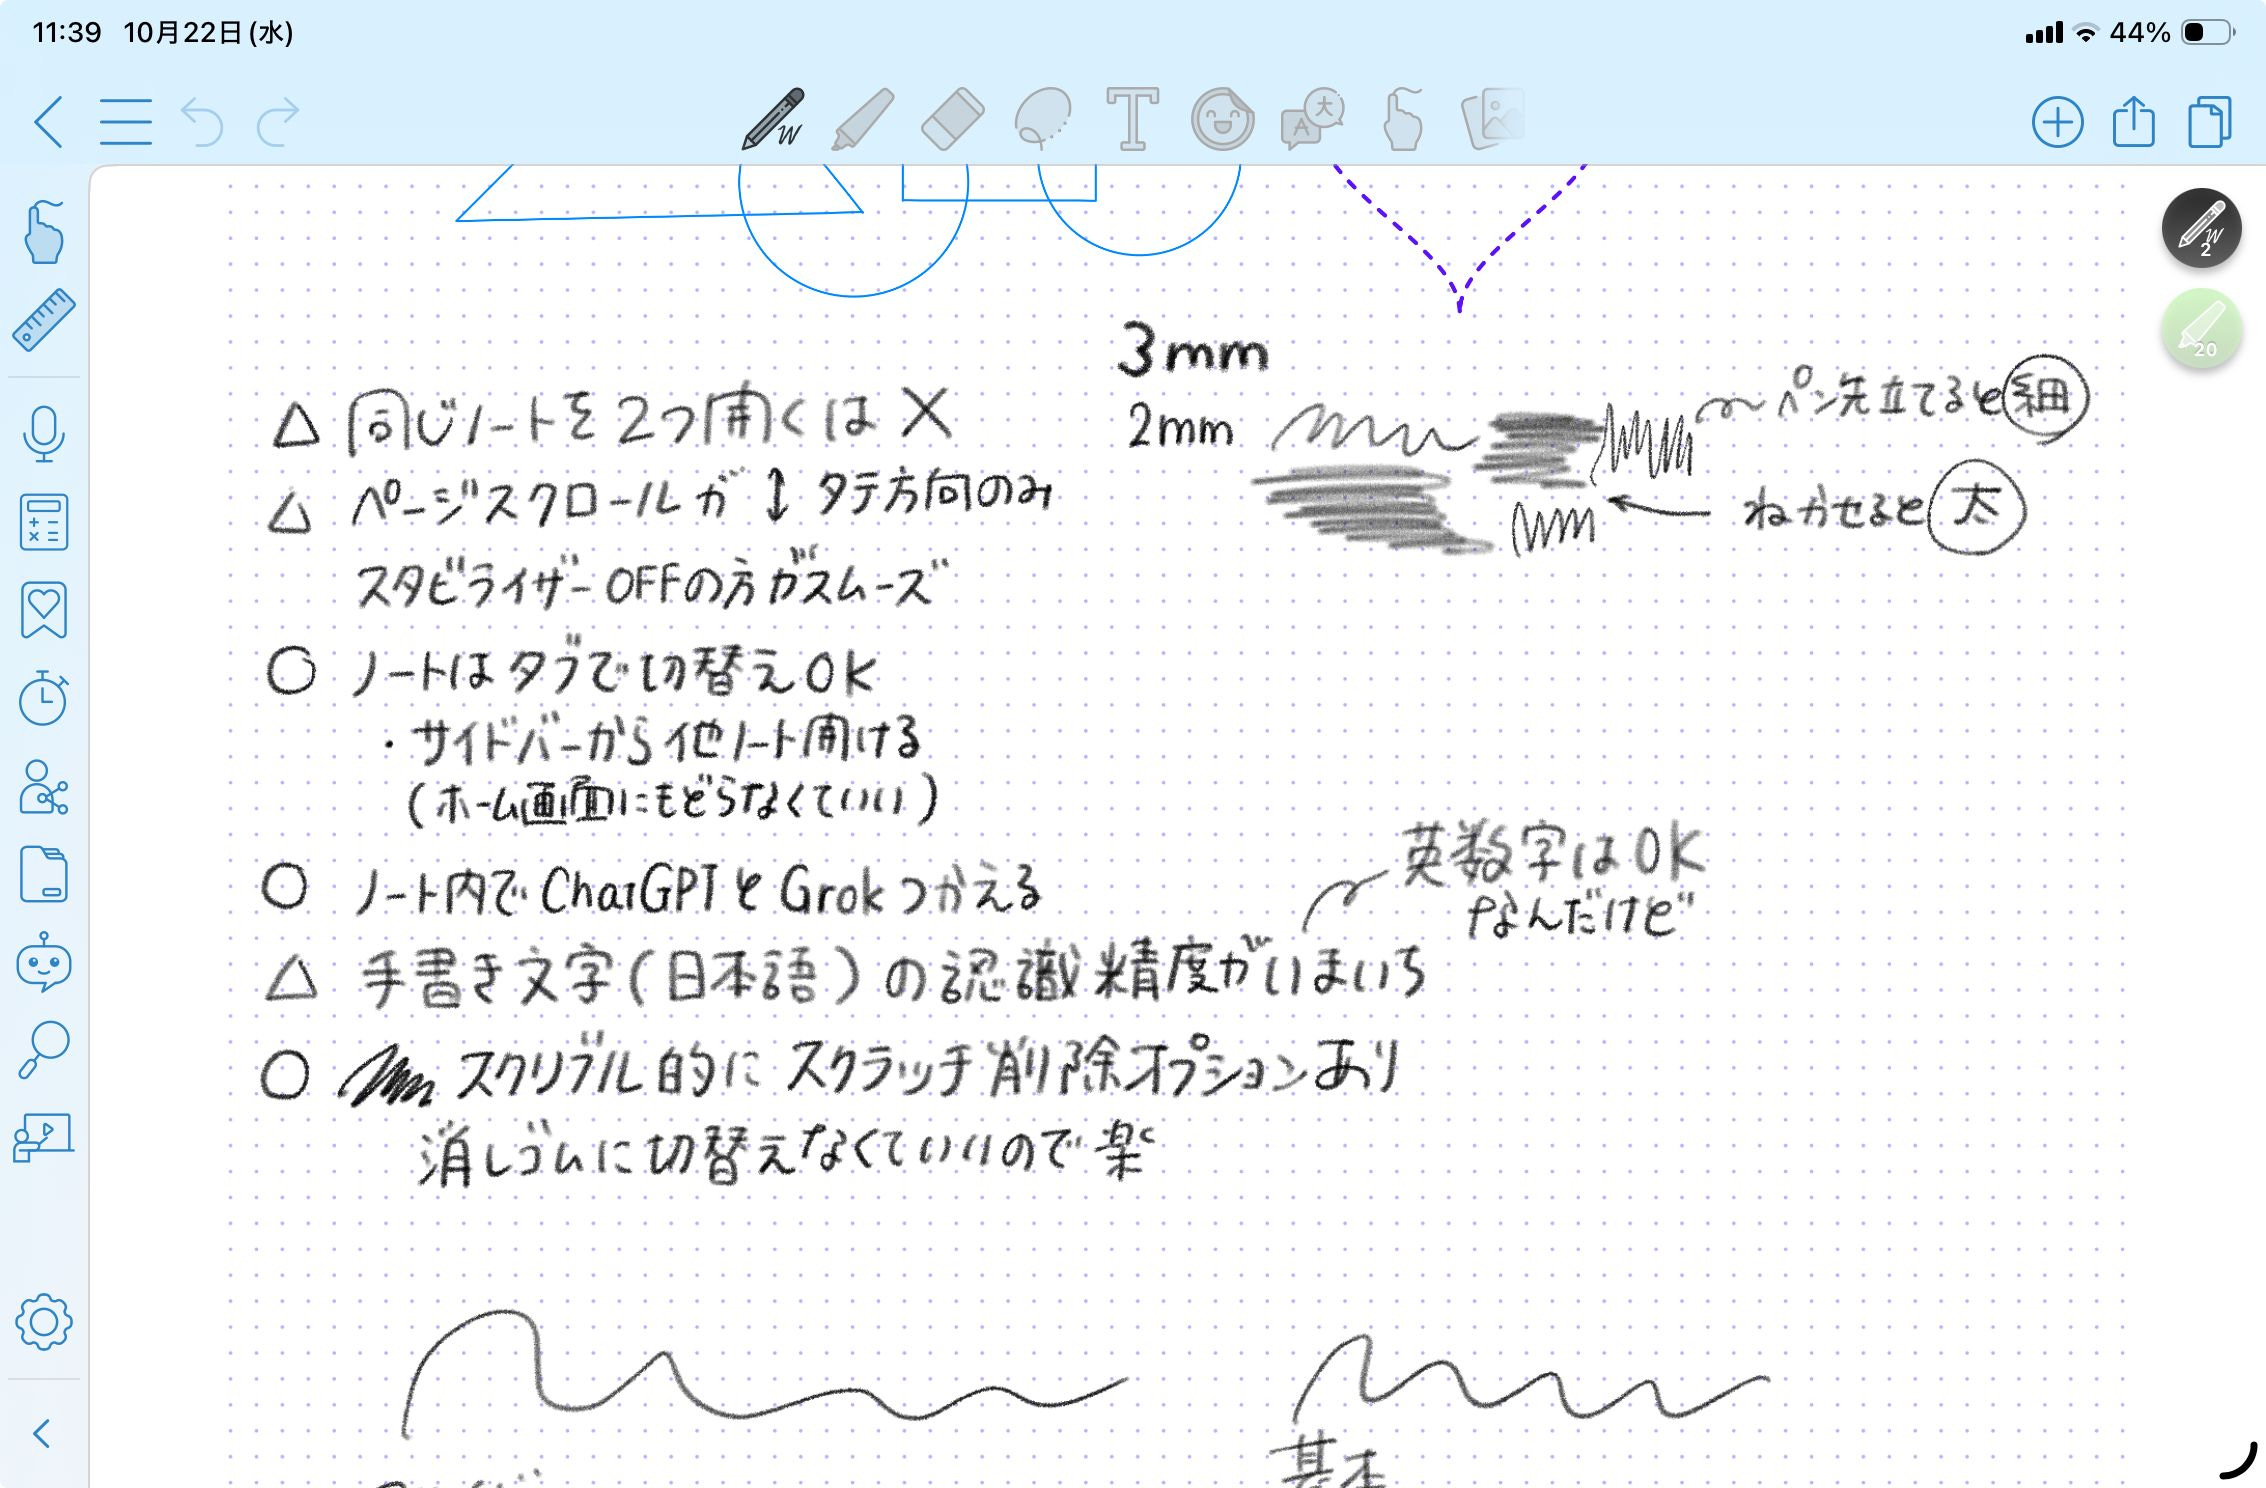 11:39 10月22日(水)
44%
2
20
3mm
2mm
ペン先立てると細
ねかせると太
△ 同じノートを2つ開くは×
△ ページスクロールが↕タテ方向のみ
スタビライザーOFFの方がスムーズ
○ ノートはタブで切替えOK
・サイドバーから他ノート開ける
(ホーム画面にもどらなくていい)
○ ノート内でChatGPTとGrokつかえる
英数字はOK
なんだけど
△ 手書き文字(日本語)の認識精度がいまいち
○ スクリブル的にスクラッチ削除オプションあり
消しゴムに切替えなくていいので楽
基本